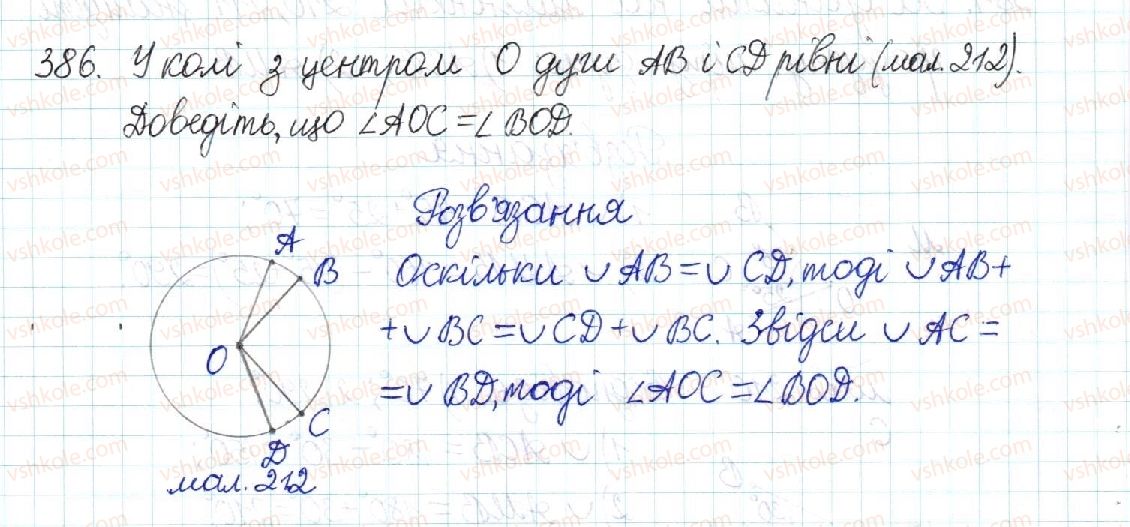 386. У колі з центром О дуги АВ і CD рівні (мал. 212).
Доведіть, що ∠AOC = ∠BOD.
Розв'язання
A
B
O
C
D
мал. 212
Оскільки ∪ AB = ∪ CD, тоді ∪ AB +
+ ∪ BC = ∪ CD + ∪ BC. Звідси ∪ AC =
= ∪ BD, тоді ∠AOC = ∠BOD.
vshkole.com